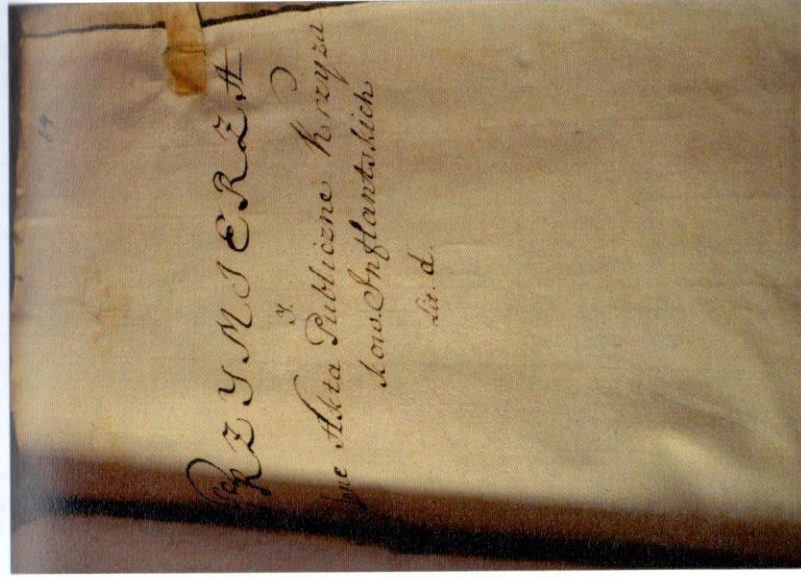 PRZYMIERZA
y
Inne Akta Publiczne Krzyża
kow Inflantskich
Lit. d.